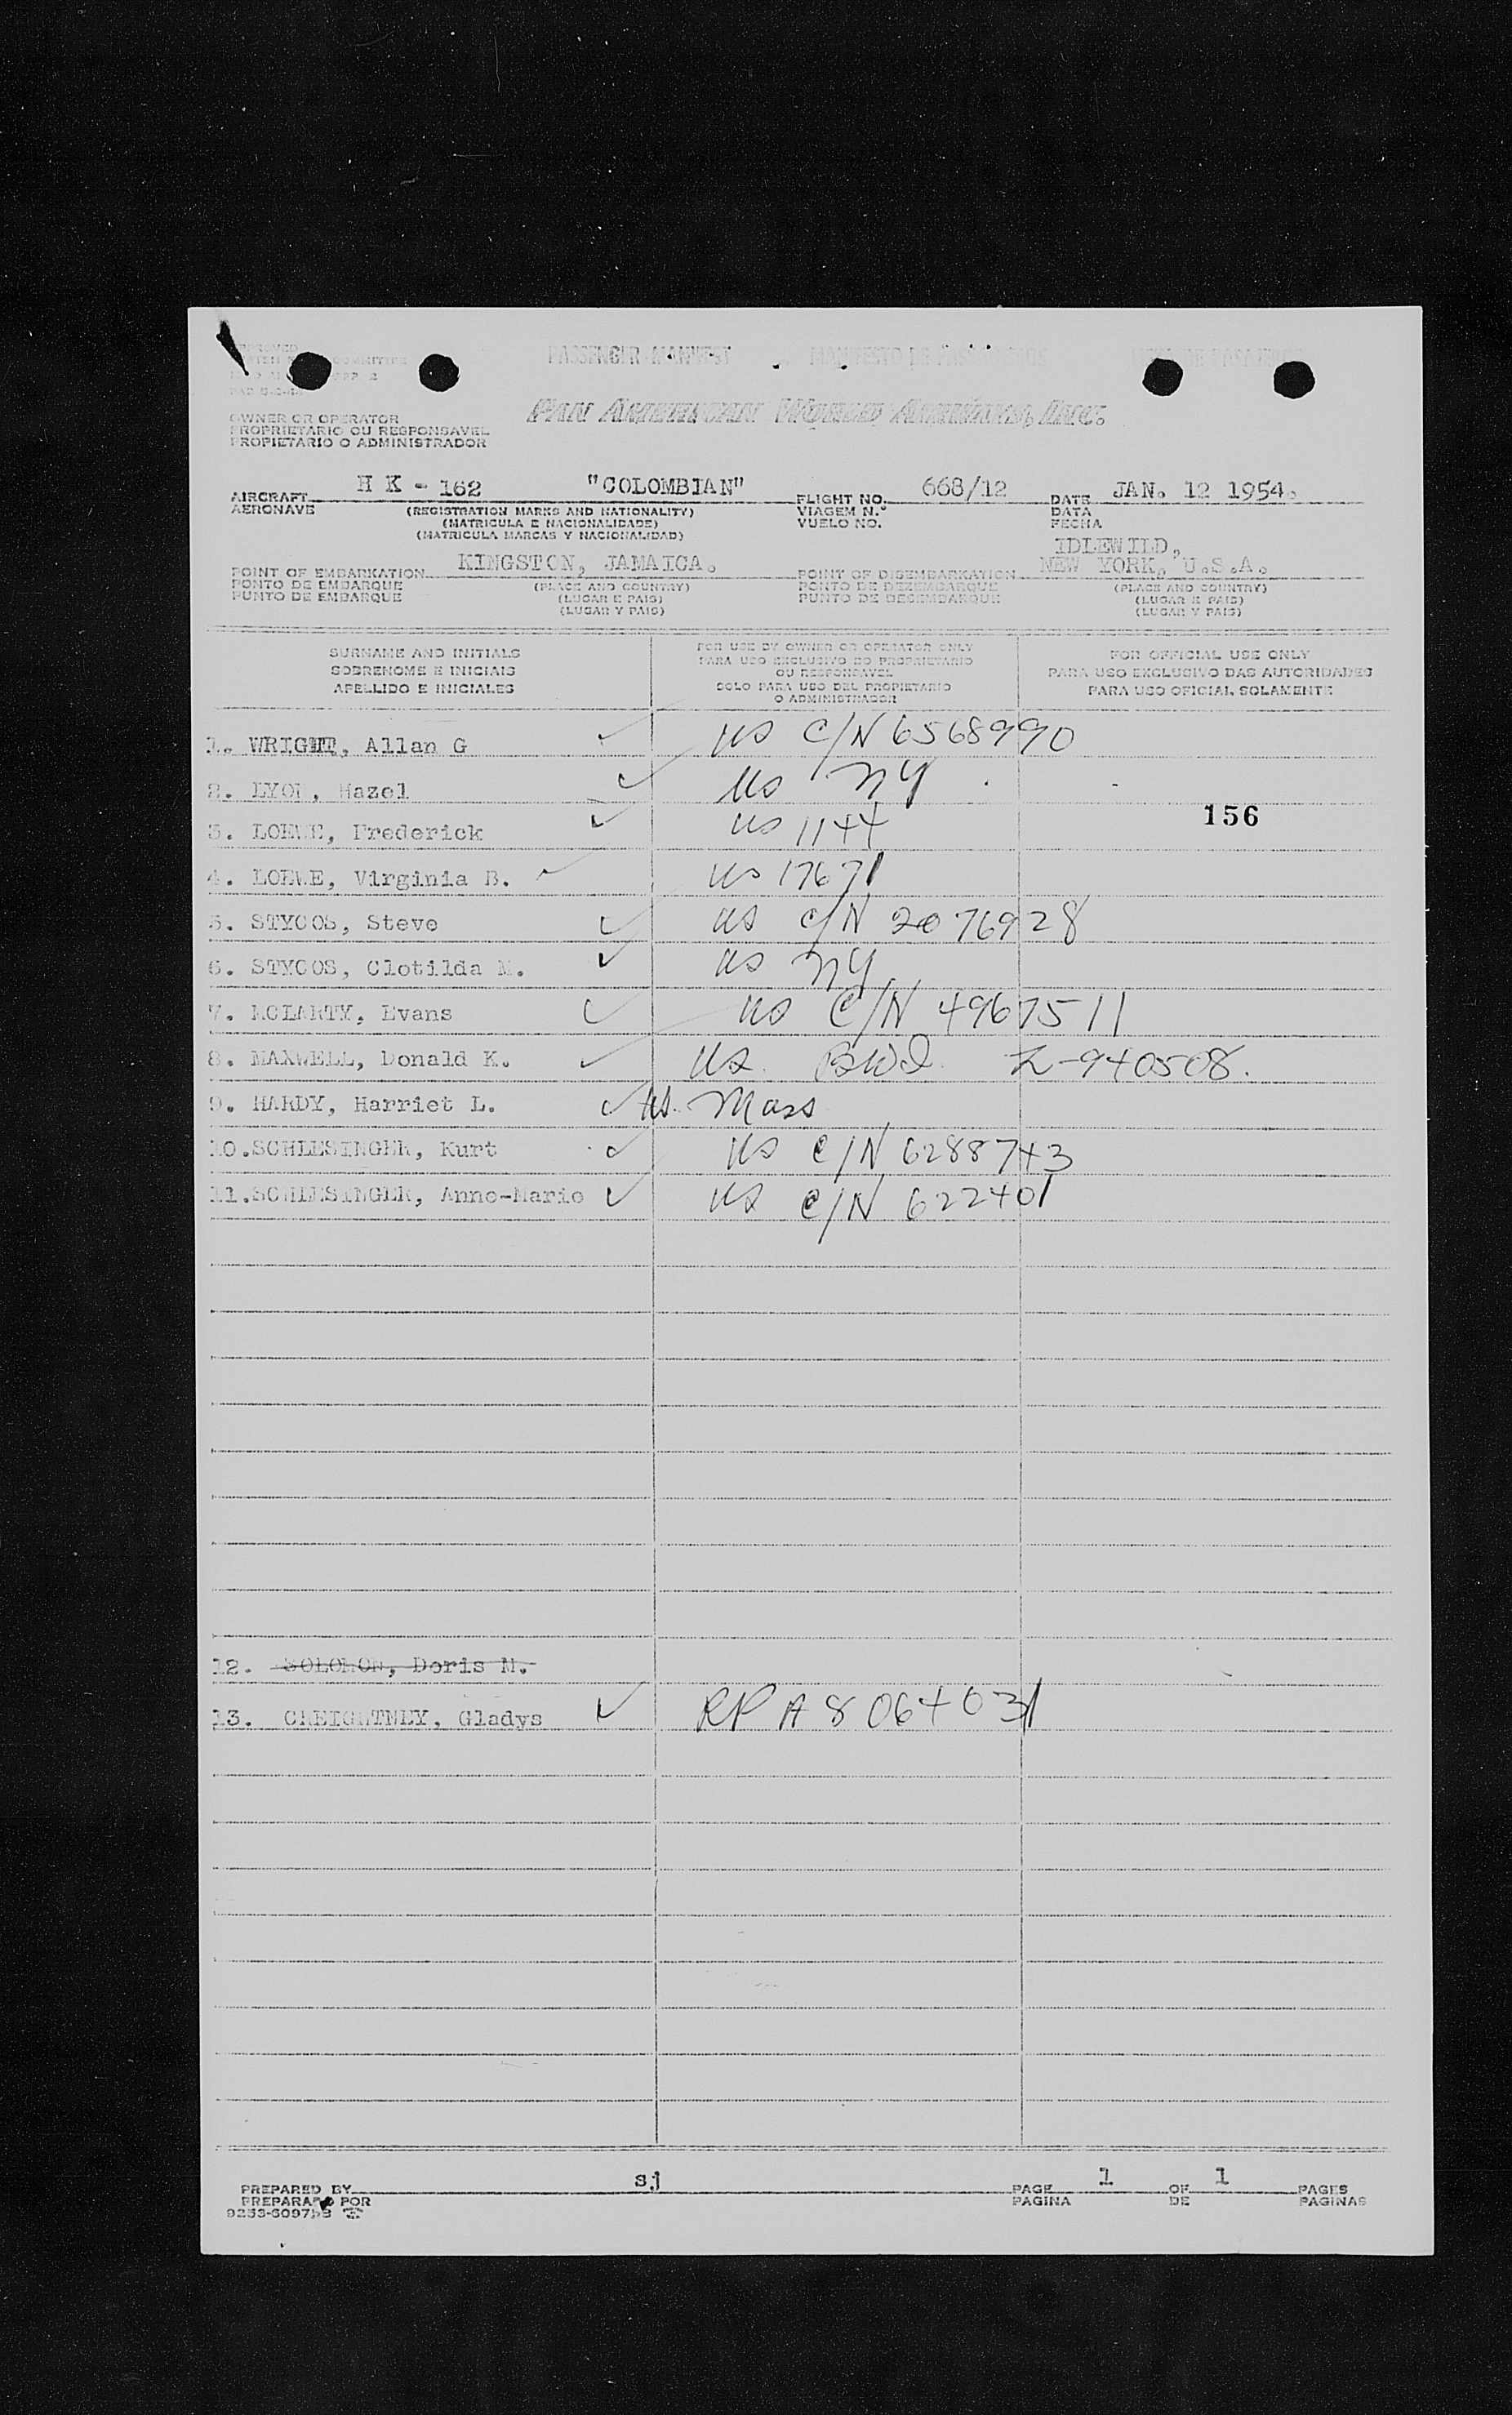 PASSENGER MANIFEST MANIFESTO DE
OWNER OR OPERATOR
PROPRIETARIO OU RESPONSAVEL
PROPIETARIO O ADMINISTRADOR
PAN AMERICAN WORLD AIRWAYS, INC.
AIRCRAFT H K - 162 "COLOMBIAN" FLIGHT NO. 668/12 DATE JAN. 12 1954.
AERONAVE (REGISTRATION MARKS AND NATIONALITY) VIAGEM N.º DATA
(MATRICULA E NACIONALIDADE) VUELO NO. FECHA
(MATRICULA MARCAS Y NACIONALIDAD)
IDLEWILD,
POINT OF EMBARKATION KINGSTON, JAMAICA. POINT OF DISEMBARKATION NEW YORK, U.S.A.
PONTO DE EMBARQUE (PLACE AND COUNTRY) PONTO DE DEZEMBARQUE (PLACE AND COUNTRY)
PUNTO DE EMBARQUE (LUGAR E PAIS) PUNTO DE DESEMBARQUE (LUGAR E PAIS)
(LUGAR Y PAIS) (LUGAR Y PAIS)
SURNAME AND INITIALS
SOBRENOME E INICIAIS
APELLIDO E INICIALES
FOR USE BY OWNER OR OPERATOR ONLY
PARA USO EXCLUSIVO DO PROPRIETARIO
OU RESPONSAVEL
SOLO PARA USO DEL PROPIETARIO
O ADMINISTRADOR
FOR OFFICIAL USE ONLY
PARA USO EXCLUSIVO DAS AUTORIDADES
PARA USO OFICIAL SOLAMENTE
1. WRIGHT, Allan G ✓ US C/N 6568990
2. LYON, Hazel ✓ US NY
156
3. LOEWE, Frederick ✓ US 1144
4. LOEWE, Virginia B. ✓ US 17671
5. STYCOS, Steve ✓ US C/N 2076928
6. STYCOS, Clotilda M. ✓ US NY
7. MCLARTY, Evans ✓ US C/N 4967511
8. MAXWELL, Donald K. ✓ US. BWI Z-940508.
9. HARDY, Harriet L. ✓ US. Mass
10. SCHLESINGER, Kurt ✓ US C/N 6288743
11. SCHLESINGER, Anne-Marie ✓ US C/N 622401
12. SOLOMON, Doris M.
13. CREIGHTNEY, Gladys ✓ RP A8064031
PREPARED BY sj PAGE 1 OF 1 PAGES
PREPARADO POR PAGINA DE PAGINAS